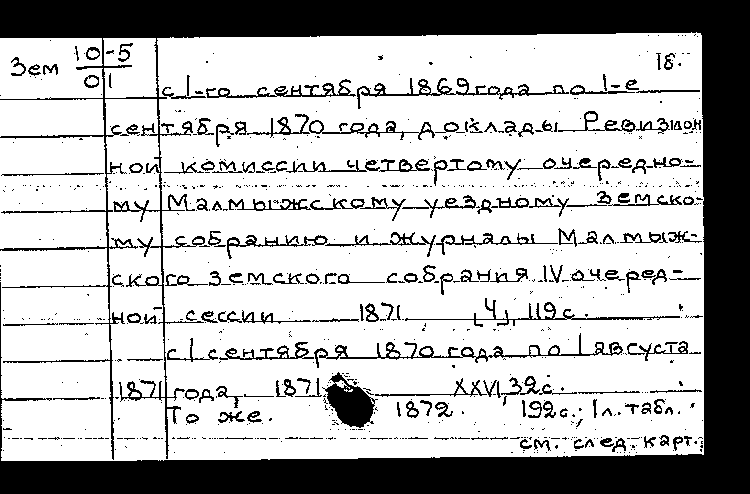 Зем 10-5
01
18.
с 1-го сентября 1869 года по 1-е
сентября 1870 года, доклады Ревизион
ной комиссии четвертому очередно-
му Малмыжскому уездному земско-
му собранию и журналы Малмыж-
ского земского собрания IV очеред-
ной сессии 1871. [4], 119 с.
с 1 сентября 1870 года по 1 августа
1871 года, 1871 XXVI, 32 с.
То же. 1872. 192 с.; 1 л. табл.
см. след. карт.